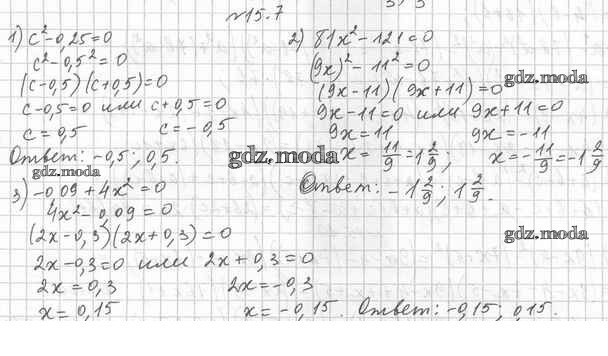 №15.7
1) c² - 0,25 = 0
c² - 0,5² = 0
(c - 0,5)(c + 0,5) = 0
c - 0,5 = 0 или c + 0,5 = 0
c = 0,5 c = - 0,5
Ответ: -0,5; 0,5.
2) 81x² - 121 = 0
(9x)² - 11² = 0
(9x - 11)(9x + 11) = 0
gdz.moda
9x - 11 = 0 или 9x + 11 = 0
9x = 11 9x = - 11
gdz.moda
x = 11/9 = 1 2/9; x = - 11/9 = -1 2/9
Ответ: - 1 2/9; 1 2/9.
gdz.moda
3) -0,09 + 4x² = 0
4x² - 0,09 = 0
(2x - 0,3)(2x + 0,3) = 0
gdz.moda
2x - 0,3 = 0 или 2x + 0,3 = 0
2x = 0,3 2x = - 0,3
x = 0,15 x = - 0,15. Ответ: -0,15; 0,15.